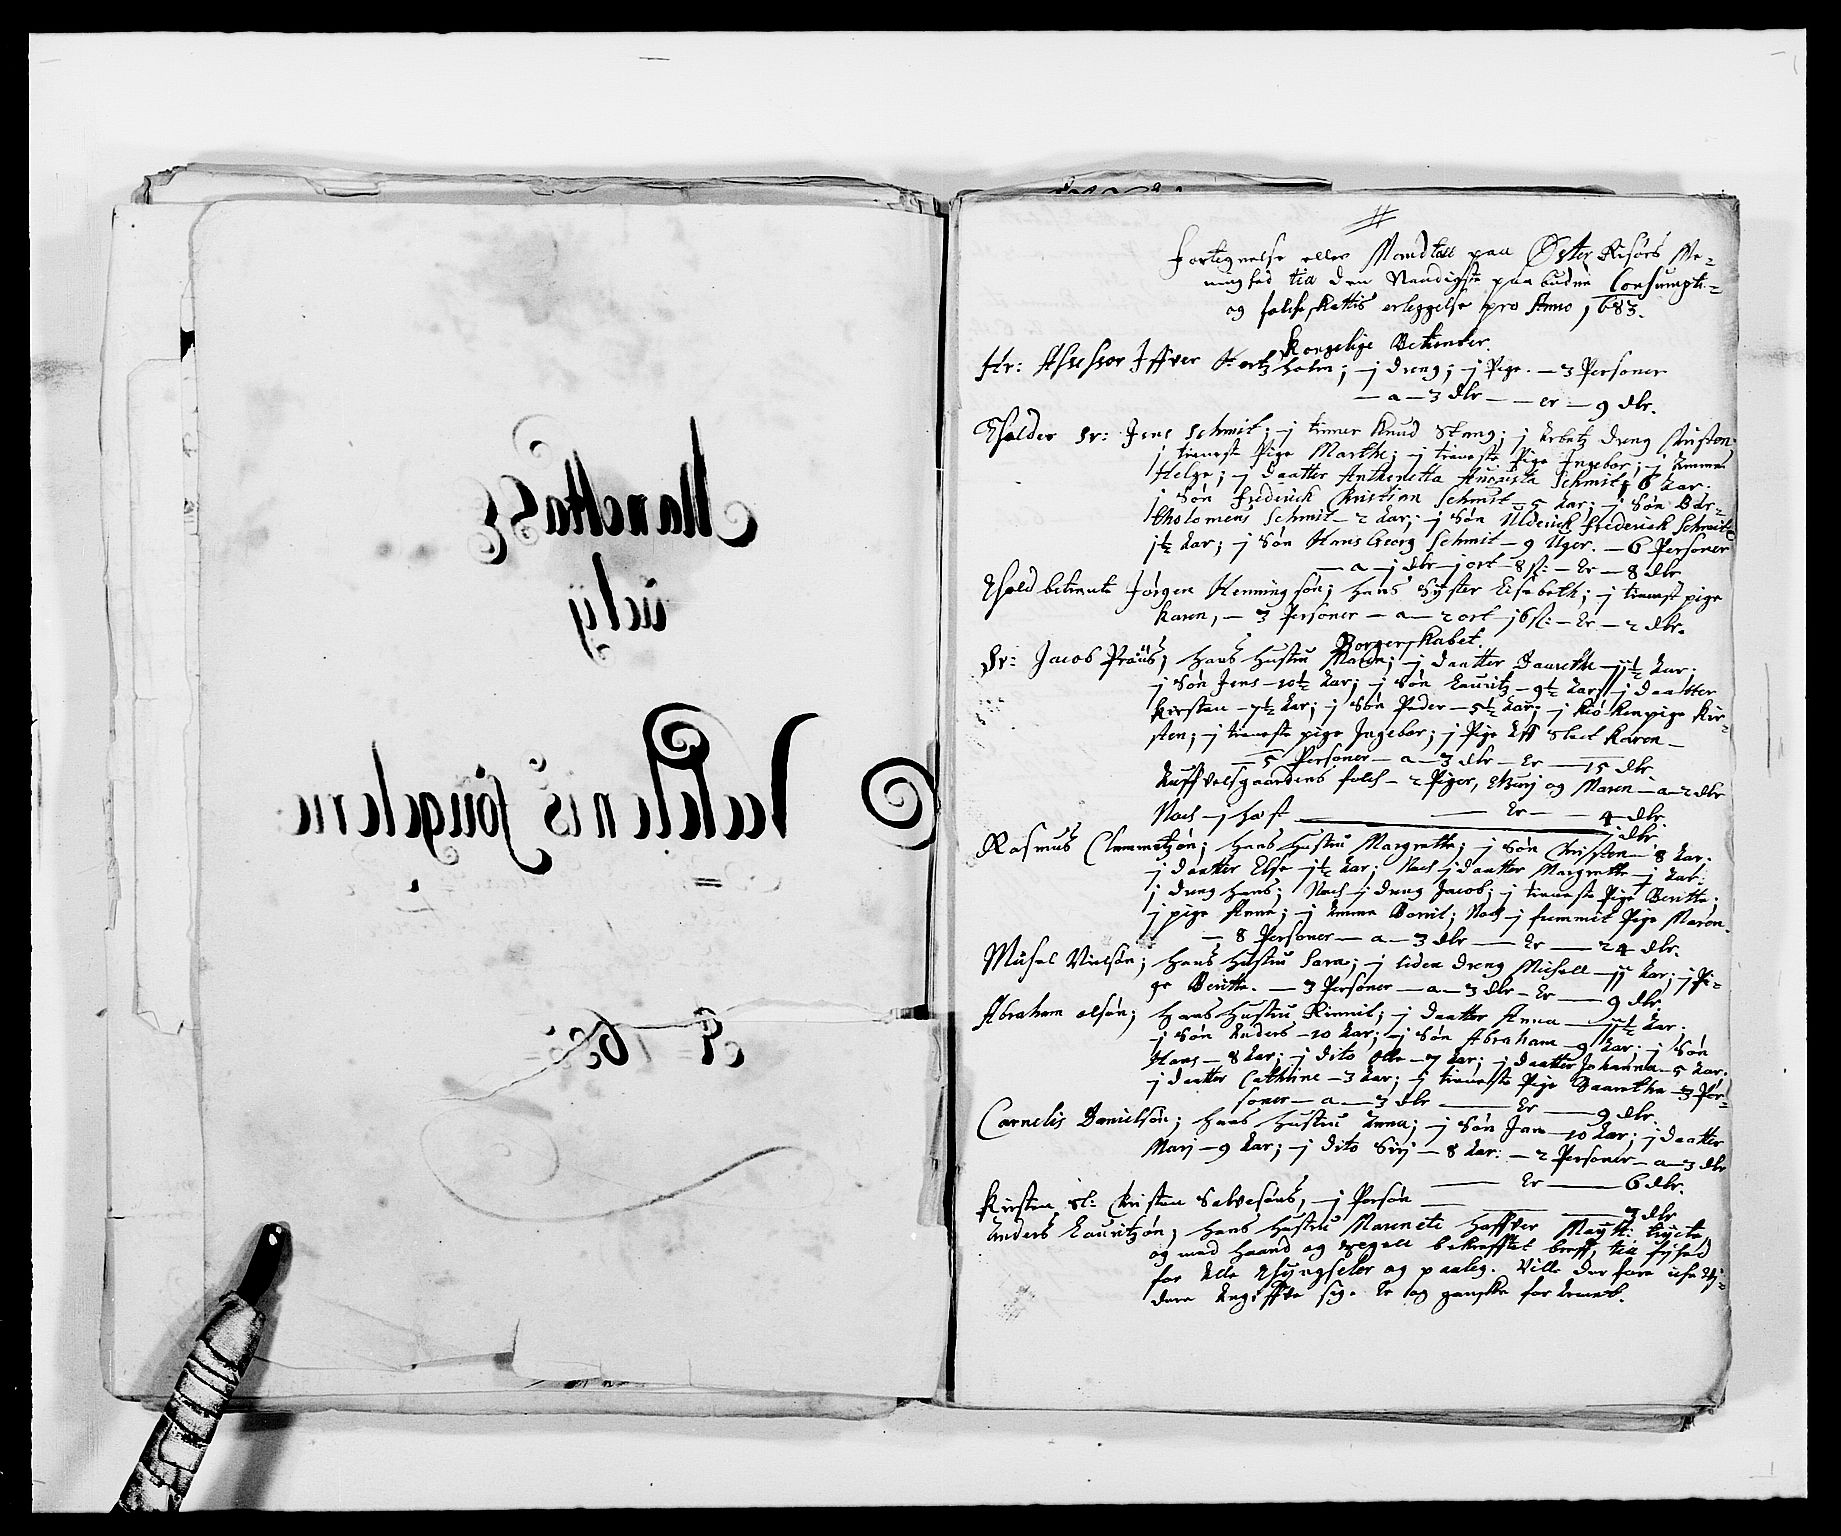 Mandtall
udj
Nedenis fougderie
P: 1683
#
Fortegnelse eller Mandtall paa Øster Riisørs Me-
nighed till den Naadigste paa budne Consumpti-
og folcheskattis erleggelse pro Anno 1683.
Kongelige Betienter.
Hr: Assessor Iffver Hertzholm; j dreng; j Pige. — 3 Personer
— a — 3 dlr — — er — 9 dlr.
Tholder Sr: Jens Schmit; j tiener Knud Stang; j Arbetz dreng Christen
j tieneste Pige Marthe; j tieneste Pige Ingebor; j Amme
Helge; j daatter Anthenetta Augusta Schmit; 6 Aar.
j Søn Frederich Christian Schmit — 5 Aar; j Søn Bar-
tholomeus Schmit — 2 Aar; j Søn Ulderich Friderich Schmit
j½ Aar; j Søn Hans Georg Schmit — 9 Uger. — 6 Personer
— a — j dlr j ort — 8 s: — Er — 8 dlr
Thold betiente Jørgen Henningsøn; hans Syster Elsebeth; j tienest pige
Karen, — 3 Personer — a — 2 ort j6 s: — Er — 2 dlr.
Borgerskabet.
Sr: Jacob Prøus; hans Hustru Maren; j daatter Daarethe — jj½ Aar;
j Søn Jens — 10½ Aar; j Søn Lauritz — 9½ Aar; j daatter
Kirsten — 7½ Aar; j Søn Peder — 5½ Aar; j Kiøkenpige Kir-
sten; j tieneste pige Ingebor; j Pige Aff Sted Karen —
— 5 Personer — a — 3 dlr — Er — 15 dlr
Auffvelsgaardens folch — 2 Piger, Marj og Maren — a — 2 dlr
— Er — 4 dlr.
Noch — j hest — j dlr
Rasmus Clemmetzøn; hans Hustru Margrette; j Søn Christen — 8 Aar.
j daatter Else — j½ Aar; Noch j daatter Margrette — j Aar.
j dreng Hans; Noch j dreng Jacob; j tieneste Pige Beritte;
j pige Anne; j Amme Boenil; Noch j fremmet Pige Maren.
— 8 Personer — a — 3 dlr — Er — 24 dlr.
Michel Nielsøn; hans Hustru Sara; j liden dreng Michell — jj Aar; j Pi-
ge Beritte. — 3 Personer — a — 3 dlr — Er — 9 dlr.
Abraham olsøn; hans Hustru Rinnil; j daatter Anna — jj½ Aar.
j Søn Anders — 10 Aar; j Søn Abraham — 9 Aar; j Søn
Hans — 8 Aar; j dito Olle — 7 Aar; j daatter Johanna — 5 Aar.
j daatter Cathrine — 3 Aar; j tieneste Pige Daarethe — 3 Per-
soner — a — 3 dlr — Er — 9 dlr.
Cornelis Danielsøn; hans Hustru Anna; j Søn Jan — 10 Aar; j daatter
Marj — 9 Aar; j dito Sirj — 8 Aar: — 2 Personer — a — 3 dlr
— Er — 6 dlr.
Kirsten Sl: Christen Salvesøns, j Persøn — — 3 dlr
Anders Lauritzøn; hans Hustru Marenete haffver Maytt:
og med haand og Segell bekrefftet breff, till
for Alle Thyngseler og paaleg. Ville der fore iche
dere Angiffve sig. Er og ganske for Armet.